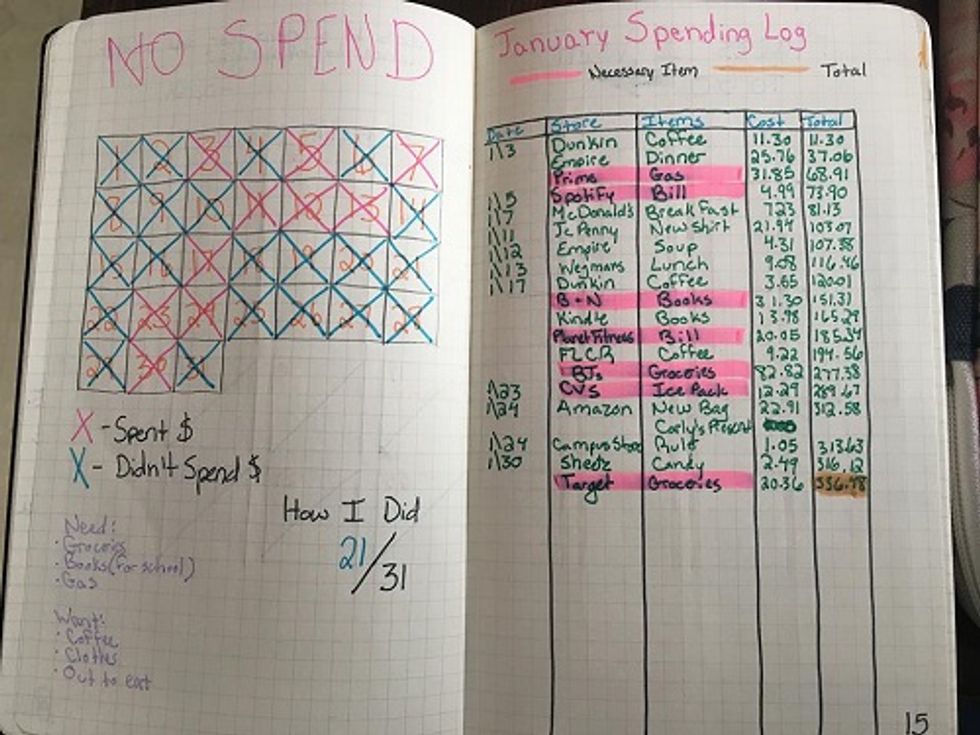 NO SPEND
1 2 3 4 5 6 7
8 9 10 11 12 13 14
15 16 17 18 19 20 21
22 23 24 25 26 27 28
29 30 31
X - Spent $
X - Didn't Spend $
How I Did
21/31
Need:
• Groceries
• Books (for school)
• Gas
Want:
• Coffee
• Clothes
• Out to eat
January Spending Log
Necessary Item Total
Date Store Items Cost Total
1\3 Dunkin Coffee 11.30 11.30
Empire Dinner 25.76 37.06
Prima Gas 31.85 68.91
Spotify Bill 4.99 73.90
1\5 McDonald's Breakfast 7.23 81.13
1\7 Jc Penny New Shirt 21.94 103.07
1\11 Empire Soup 4.31 107.38
1\12 Wegmans Lunch 9.08 116.46
1\13 Dunkin Coffee 3.65 120.01
1\17 B+N Books 31.30 151.31
Kindle Books 13.98 165.29
Planet Fitness Bill 20.05 185.34
FLCR Coffee 9.22 194.56
BJs Groceries 82.82 277.38
1\23 CVS Ice Pack 12.29 289.67
1\24 Amazon New Bag 22.91 312.58
Carly's Present
1\24 Campus Store Ruler 1.05 313.63
1\30 Sheetz Candy 2.49 316.12
Target Groceries 20.36 336.48
15